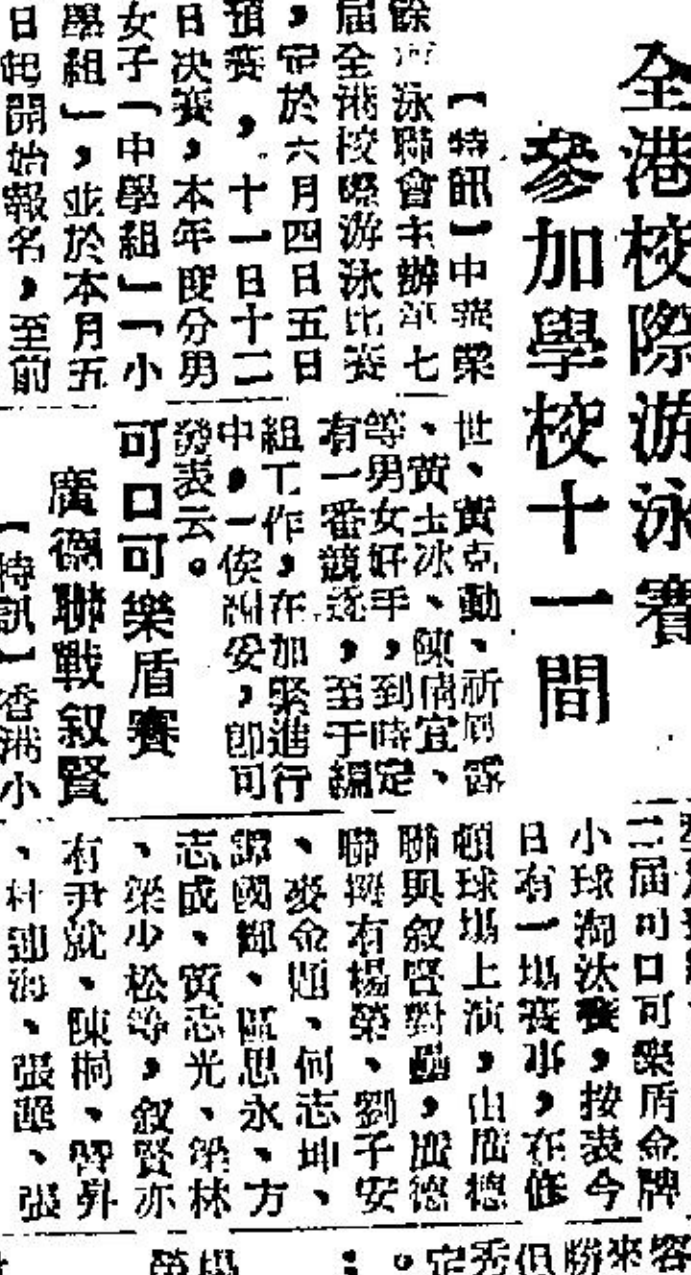 全港校際游泳賽
參加學校十一間
【特訊】中華業
餘泳聯會主辦第七
屆全港校際游泳比賽
，定於六月四日五日
預賽，十一日十二
日决賽，本年度分男
女子「中學組」「小
學組」，並於本月五
日起開始報名，至前
世、黃克動、祈
、黃士冰、陳宜、
等男女好手，到時定
有一番競逐，至于編
組工作，在加緊進行
中，一俟安，即可
發表云。
可口可樂盾賽
廣德聯戰叙賢
【特訊】香港小
三屆可口可樂盾金牌
小球淘汰賽，按表今
日有一場賽事，在修
頓球場上演，由廣德
聯與叙賢對壘，廣德
聯擁有楊榮、劉子安
、麥金、何志坤、
譚國、區思永、方
志成、黃志光、梁林
、梁少松等，叙賢亦
有尹就、陳桐、昇
、杜海、張、張